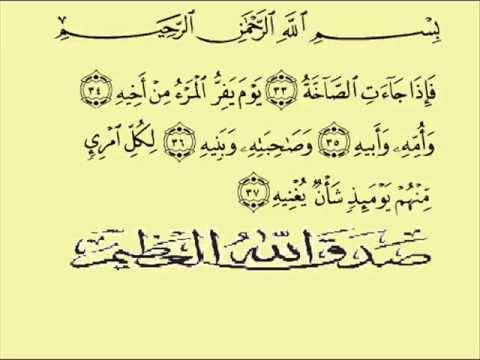 بِسْمِ ٱللَّهِ ٱلرَّحْمَٰنِ ٱلرَّحِيمِ
فَإِذَا جَآءَتِ ٱلصَّآخَّةُ ٣٣ يَوْمَ يَفِرُّ ٱلْمَرْءُ مِنْ أَخِيهِ ٣٤
وَأُمِّهِۦ وَأَبِيهِ ٣٥ وَصَٰحِبَتِهِۦ وَبَنِيهِ ٣٦ لِكُلِّ ٱمْرِئٍ
مِّنْهُمْ يَوْمَئِذٍ شَأْنٌ يُغْنِيهِ ٣٧
صَدَقَ اللهُ العَظِيمُ